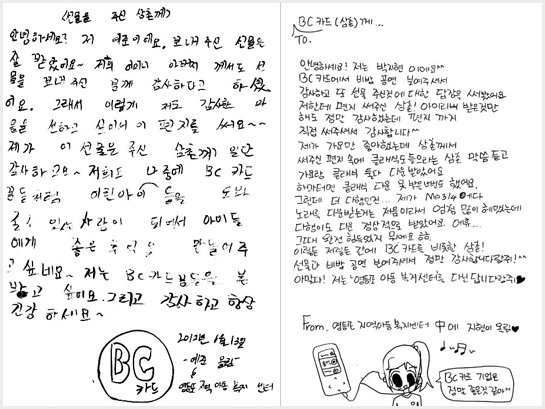 <선물을 주신 삼촌께>
안녕하세요? 저 예은이에요. 보내주신 선물은
잘 받았어요~ 저희 어머니 아버지 께서도 선
물을 보내주신 분께 감사하다고 하셨
어요. 그래서 이렇게 저도 감사한 마
음을 전하고 싶어서 이 편지를 써요~~
제가 이 선물을 주신 삼촌께 일단
감사하고요~ 저희도 나중에 BC 카드
분들처럼 어린아이들을 도와
줄 수 있는 사람이 되어서 아이들
에게 좋은 추억을 만들어주
고 싶네요~ 저는 BC카드분들을 본
받고 싶어요. 그리고 감사하고 항상
건강하세요~
BC
카드
2012년 6월 13일
-예은 올림-
영등포 지역 아동 복지 센터
BC카드 (삼촌)께...
To.
안녕하세요! 저는 박지현이에요^^
BC카드에서 비밥 공연 보여주셔서
감사하고 또 선물 주신것에 대한 답장을 써봤어요
저한테 편지 써주신 삼촌! 아이리버 받은것만
해도 정말 감사했는데 편지까지
직접 써주셔서 감사합니다^^
제가 가요만 좋아했는데 삼촌께서
써주신 편지 속에 클래식도 들으라는 삼촌 말씀 듣고
가요랑 클래식 둘다 다운받았어요
하마터면 클래식 다운 못받을뻔도 했어요.
그런데 더 대행인건... 제가 Mp3나
노래를 다운받는게 처음이라서 엄청 많이 헤맸는데
다행이도 다운 정상적으로 받았어요. 에휴...
그때 완전 힘들었지 뭐에요 ㅎㅎ
이런 저런들 간에 BC카드를 비롯한 삼촌!
선물과 비밥 공연 보여주셔서 정말 감사합니당~^^
아맞다! 저는 '영등포 아동 복지센터'를 다닌답니다
From. 영등포 지역아동복지센터 中에 지현이 올림♥
BC카드 기업은
정말 좋은것 같아~